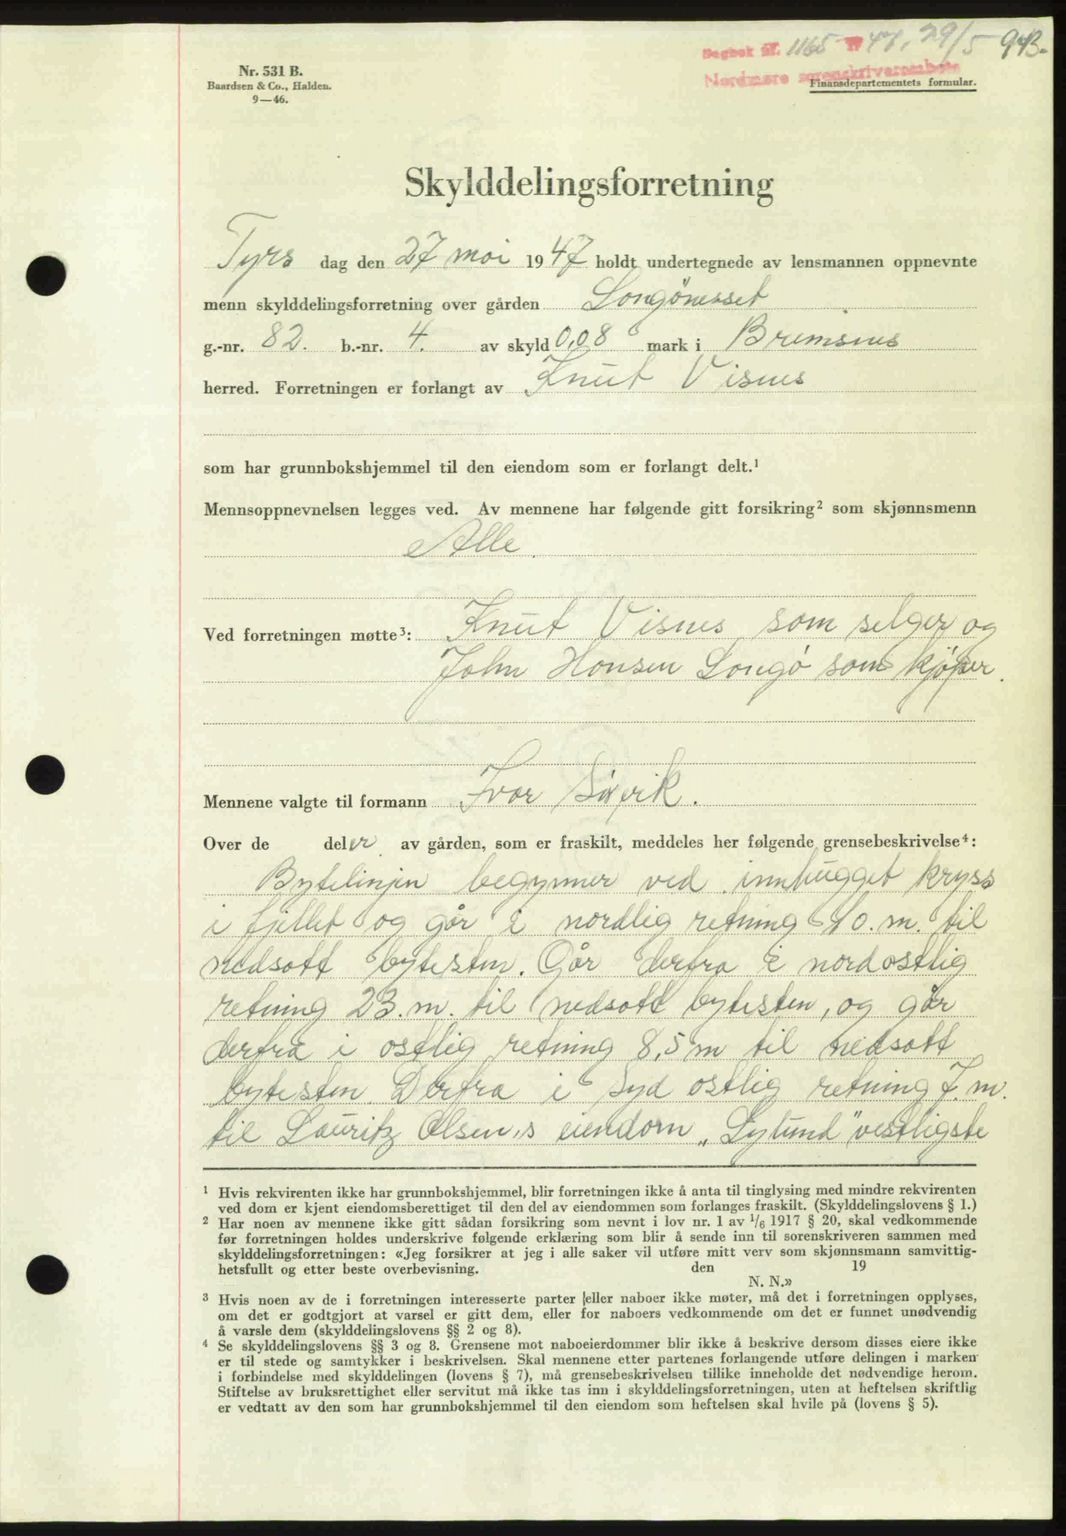 Dagbok nr. 1165 19 47, 29/5 943.
Nordmøre sorenskriverembete
Nr. 531 B.
Baardsen & Co., Halden.
9—46.
Finansdepartementets formular.
Skylddelingsforretning
Tyrs dag den 27 mai 1947 holdt undertegnede av lensmannen oppnevnte
menn skylddelingsforretning over gården Langönesset
g.-nr. 82. b.-nr. 4. av skyld 0,08 mark i Bremsnes
herred. Forretningen er forlangt av Knut Visnes
som har grunnbokshjemmel til den eiendom som er forlangt delt.¹
Mennsoppnevnelsen legges ved. Av mennene har følgende gitt forsikring² som skjønnsmenn
Alle.
Ved forretningen møtte³: Knut Visnes som selger og
John Hansen Langø som kjøper.
Mennene valgte til formann Ivar Søvik.
Over de deler av gården, som er fraskilt, meddeles her følgende grensebeskrivelse⁴:
Bytelinjen begynner ved innhugget kryss
i fjellet og går i nordlig retning 40. m. til
nedsatt bytesten. Går derfra i nordostlig
retning 23. m. til nedsatt bytesten, og går
derfra i ostlig retning 8,5 m til nedsatt
bytesten. Derfra i syd ostlig retning 7. m.
til Lauritz Olsen,s eiendom „Sylund" vestligste
¹ Hvis rekvirenten ikke har grunnbokshjemmel, blir forretningen ikke å anta til tinglysing med mindre rekvirenten
ved dom er kjent eiendomsberettiget til den del av eiendommen som forlanges fraskilt. (Skylddelingslovens § 1.)
² Har noen av mennene ikke gitt sådan forsikring som nevnt i lov nr. 1 av 1/6 1917 § 20, skal vedkommende
før forretningen holdes underskrive følgende erklæring som blir å sende inn til sorenskriveren sammen med
skylddelingsforretningen: «Jeg forsikrer at jeg i alle saker vil utføre mitt verv som skjønnsmann samvittig-
hetsfullt og etter beste overbevisning. den 19
N. N.»
³ Hvis noen av de i forretningen interesserte parter eller naboer ikke møter, må det i forretningen opplyses,
om det er godtgjort at varsel er gitt dem, eller for naboers vedkommende om det er funnet unødvendig
å varsle dem (skylddelingslovens §§ 2 og 8).
⁴ Se skylddelingslovens §§ 3 og 8. Grensene mot naboeierdommer blir ikke å beskrive dersom disses eiere ikke
er til stede og samtykker i beskrivelsen. Skal mennene etter partenes forlangende utføre delingen i marken
i forbindelse med skylddelingen (lovens § 7), må grensebeskrivelsen tillike inneholde det nødvendige herom.
Stiftelse av bruksrettighet eller servitut må ikke tas inn i skylddelingsforretningen, uten at heftelsen skriftlig
er vedtatt av den som har grunnbokshjemmel til den eiendom som heftelsen skal hvile på (lovens § 5).